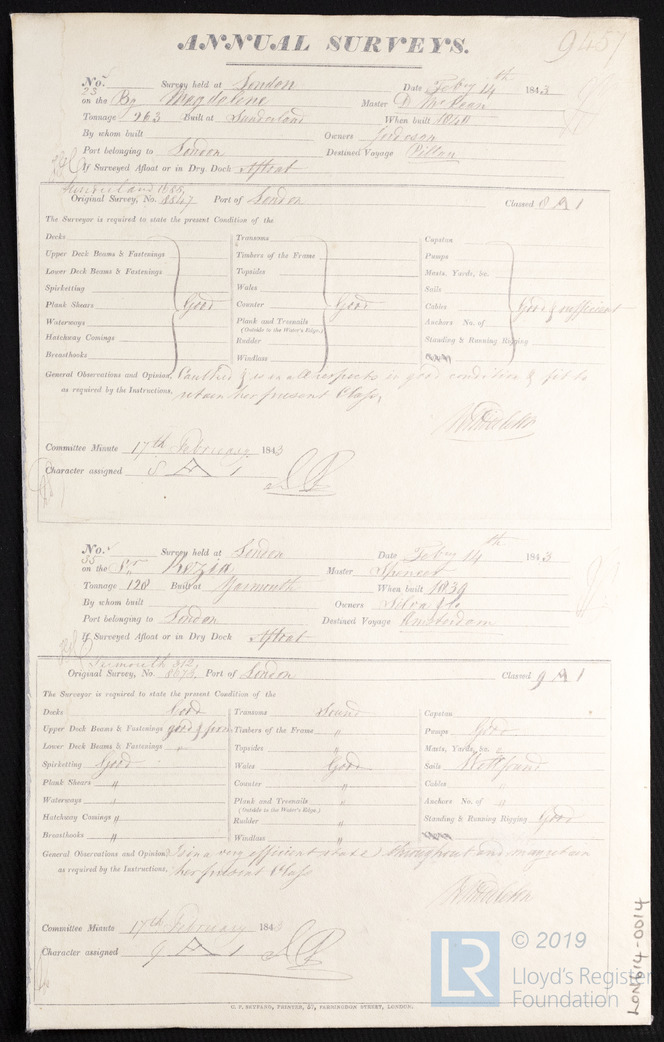 ANNUAL SURVEYS.
9457
No. 23 Survey held at London Date Feby 14th 1843
on the Bq Magdalene Master D McLean
Tonnage 263 Built at Sunderland When built 1840
By whom built Owners
Port belonging to London Destined Voyage
If Surveyed Afloat or in Dry Dock Afloat
Sunderland
Original Survey, No. 8847 Port of London Classed 8 A 1
The Surveyor is required to state the present Condition of the
Decks Transoms Capstan
Upper Deck Beams & Fastenings Timbers of the Frame Pumps
Lower Deck Beams & Fastenings Topsides Masts, Yards, &c.
Spirketting Wales Sails
Plank Shears Good Counter Good Cables Good & sufficient
Waterways Plank and Treenails (Outside to the Water's Edge.) Anchors No. of
Hatchway Comings Rudder Standing & Running Rigging
Breasthooks Windlass
General Observations and Opinion, Caulked & is in all respects in good condition & fit to
as required by the Instructions, retain her present Class,
Committee Minute 17th February 1843
Character assigned 8 A 1
No. 35 Survey held at London Date Feby 14th 1843
on the Sr Kezia Master Spencer
Tonnage 128 Built at Yarmouth When built 1839
By whom built Owners
Port belonging to London Destined Voyage Amsterdam
If Surveyed Afloat or in Dry Dock Afloat
Original Survey, No. Port of London Classed 9 A 1
The Surveyor is required to state the present Condition of the
Decks Good Transoms Sound Capstan
Upper Deck Beams & Fastenings good & Timbers of the Frame " Pumps Good
Lower Deck Beams & Fastenings " Topsides " Masts, Yards, &c.
Spirketting Good Wales Good Sails
Plank Shears " Counter " Cables "
Waterways " Plank and Treenails " (Outside to the Water's Edge.) Anchors No. of "
Hatchway Comings " Rudder " Standing & Running Rigging Good
Breasthooks " Windlass "
General Observations and Opinion, Is in a very efficient state throughout and
as required by the Instructions, her present Class
Committee Minute 17th February 1843
Character assigned 9 A 1
PRINTER, FARRINGDON STREET, LONDON.
LR © 2019
Lloyd's Register
Foundation
LON614-0014